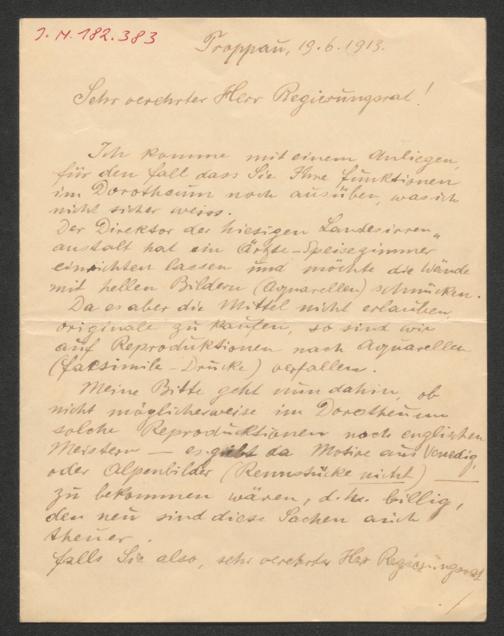 J. N. 182.383
Troppau, 19.6.1913.
Sehr verehrter Herr Regierungsrat!
Ich komme mit einem Anliegen
für den Fall dass Sie Ihre Funktionen
im Dorotheum noch ausüben, was ich
nicht sicher weiss.
Der Direktor der hiesigen Landesirren„
anstalt hat ein Ärzte-Speisezimmer
einrichten lassen und möchte die Wände
mit hellen Bildern (Aquarellen) schmücken.
Da es aber die Mittel nicht erlauben,
originale zu kaufen, so sind wir
auf Reproduktionen nach Aquarellen
(facsimile-Drucke) verfallen.
Meine Bitte geht nun dahin, ob
nicht möglicherweise im Dorotheum
solche Reproduktionen nach englischen
Meistern — es gibt da Motive aus Venedig,
oder Alpenbilder (Rennstücke nicht) —
zu bekommen wären, d.h. billig,
den neu sind diese Sachen auch
theuer.
falls Sie also, sehr verehrter Herr Regierungsrat
./